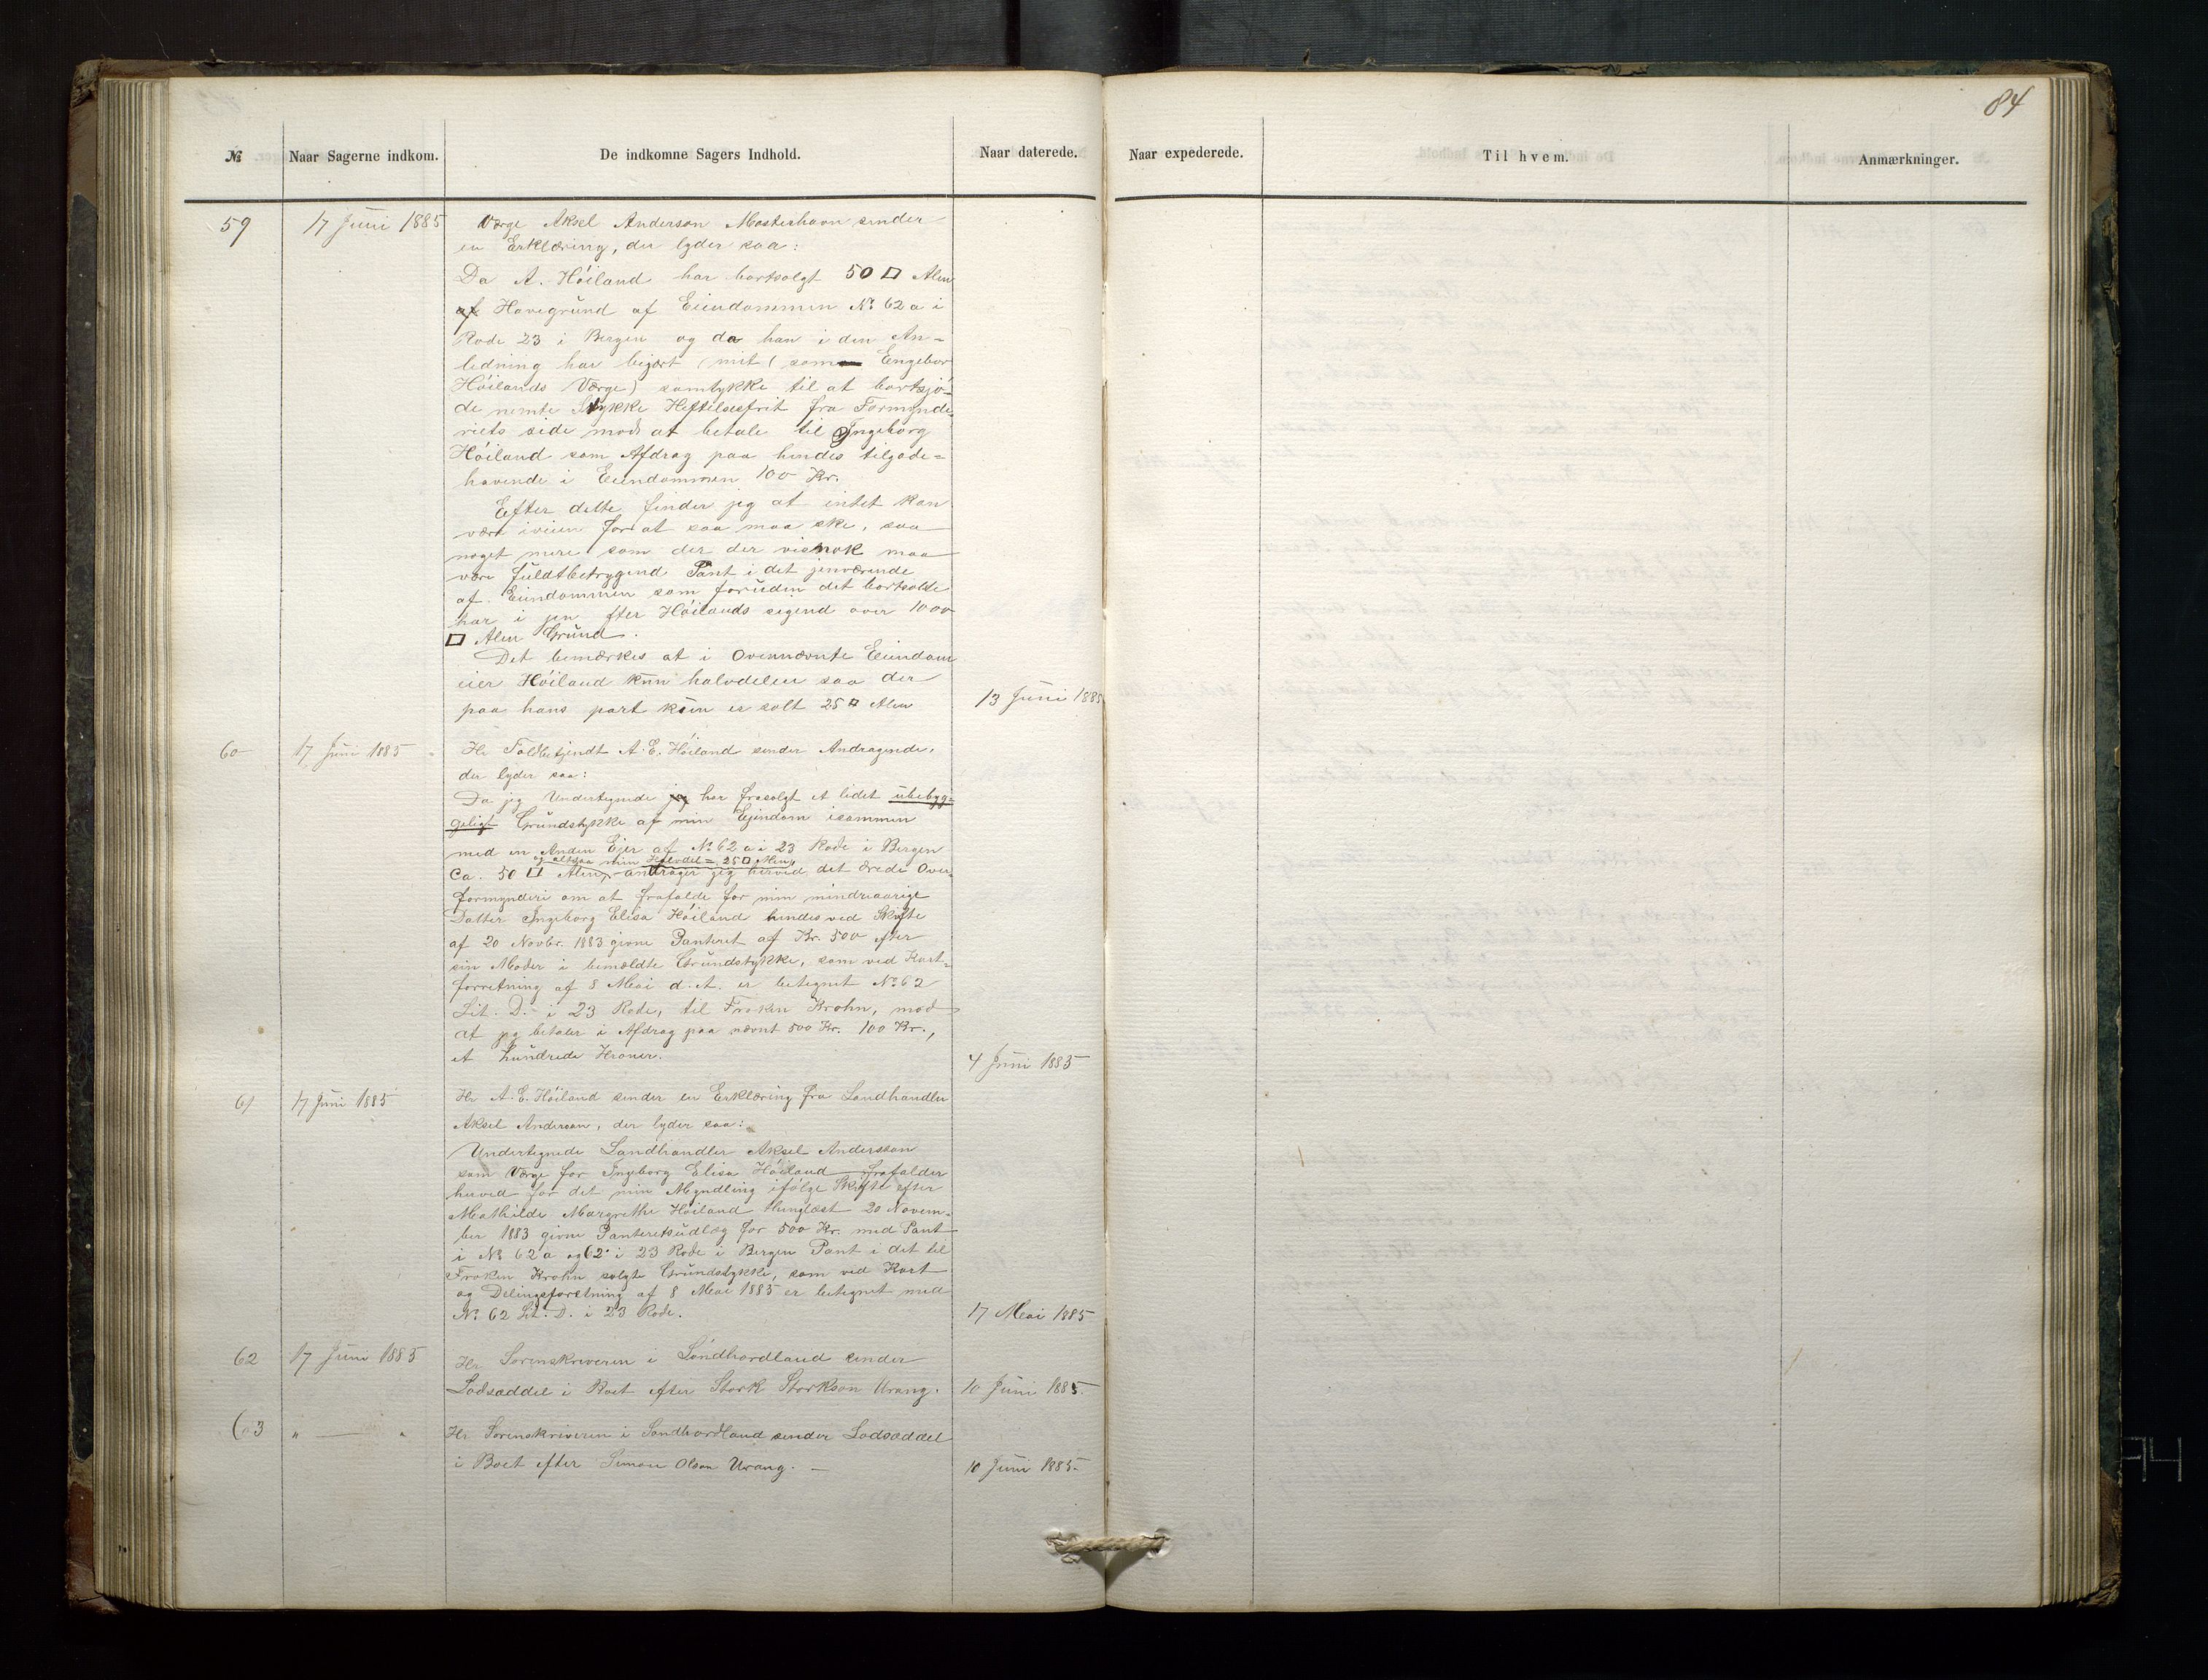 84
№ Naar Sagerne indkom. De indkomne Sagers Indhold. Naar daterede. Naar expederede. Til hvem. Anmærkninger.
59 17 Juni 1885 Værge Aksel Anderson Mosterhavn sender
en Erklæring, der lyder saa:
Da A. Höiland har bortsolgt 50 □ Alen
af Havegrund af Eiendommen No 62 a i
Rode 23 i Bergen og da han i den An=
ledning har begjært (mit (som Engebor
Höilands Værge) samtykke til at bortsjö-
de nemte Stykke Heftilsesfrit fra Formynde-
riets side mod at betale til Ingeborg
Höiland som Afdrag paa hendes tilgode=
havende i Eiendommen 100 Kr.
Efter dette finder jeg at intet kan
være iveien for at saa maa ske, saa
noget mere som der der visnok maa
være fuldtbetrygend Pant i det jenværende
af Eiendommen som foruden det bortsolte
har i jen efter Höilands sigend over 1000
□ Alen Grund.
Det bemærkes at i Ovennævnte Eiendom
eier Höiland kun halvdelen saa der
paa hans part kun er solt 25 □ Alen 13 Juni 1885
60 17 Juni 1885 Hr Toldbetjendt A. E. Höiland sender Andragende,
der lyder saa:
Da jeg Undertegnede jeg har frasolgt et lidet ubebyg=
geligt Grundstykke af min Ejendom isammen
med en Anden Ejer af No 62 a i 23 Rode i Bergen
og altsaa min Halvdel = 25 □ Alen,
Ca. 50 □ Alen, andrager jeg herved det ærede Over-
formynderi om at frafalde for min mindreaarige
Datter Ingeborg Elisa Höiland hendes ved Skifte
af 20 Novbr. 1883 givne Panteret af Kr. 500 efter
sin Moder i bemældte Grundstykke, som ved Kart-
forretning af 8 Mai d. A. er betegnet No 62
Lit. D. i 23 Rode, til Frøken Krohn, mod
at jeg betaler i Afdrag paa nævnt 500 Kr. 100 Kr.,
et hundrede Kroner. 4 Juni 1885
61 17 Juni 1885 Hr A. E. Höiland sender en Erklæring fra Landhandler
Aksel Anderson, der lyder saa:
Undertegnede Landhandler Aksel Andersson
som Værge for Ingeborg Elisa Höiland frafalder
herved for det min Myndling ifölge Skifte efter
Mathilde Margrethe Höiland thinglæst 20 Novem-
ber 1883 givne Panteretsudlæg for 500 Kr. med Pant
i No 62 a og 62 i 23 Rode i Bergen Pant i det til
Frøken Krohn solgte Grundstykke, som ved Kart
og Delingsforetning af 8 Mai 1885 er betegnet med
No 62 Lit. D. i 23 Rode. 17 Mai 1885
62 17 Juni 1885 Hr Sorenskriveren i Söndhordland sender
Lodsæddel i Boet efter Stork Storkson Urang. 10 Juni 1885.
63 " — " Hr Sorenskriveren i Sondhordland sender Lodsæddel
i Boet efter Simon Olson Urang. — 10 Juni 1885